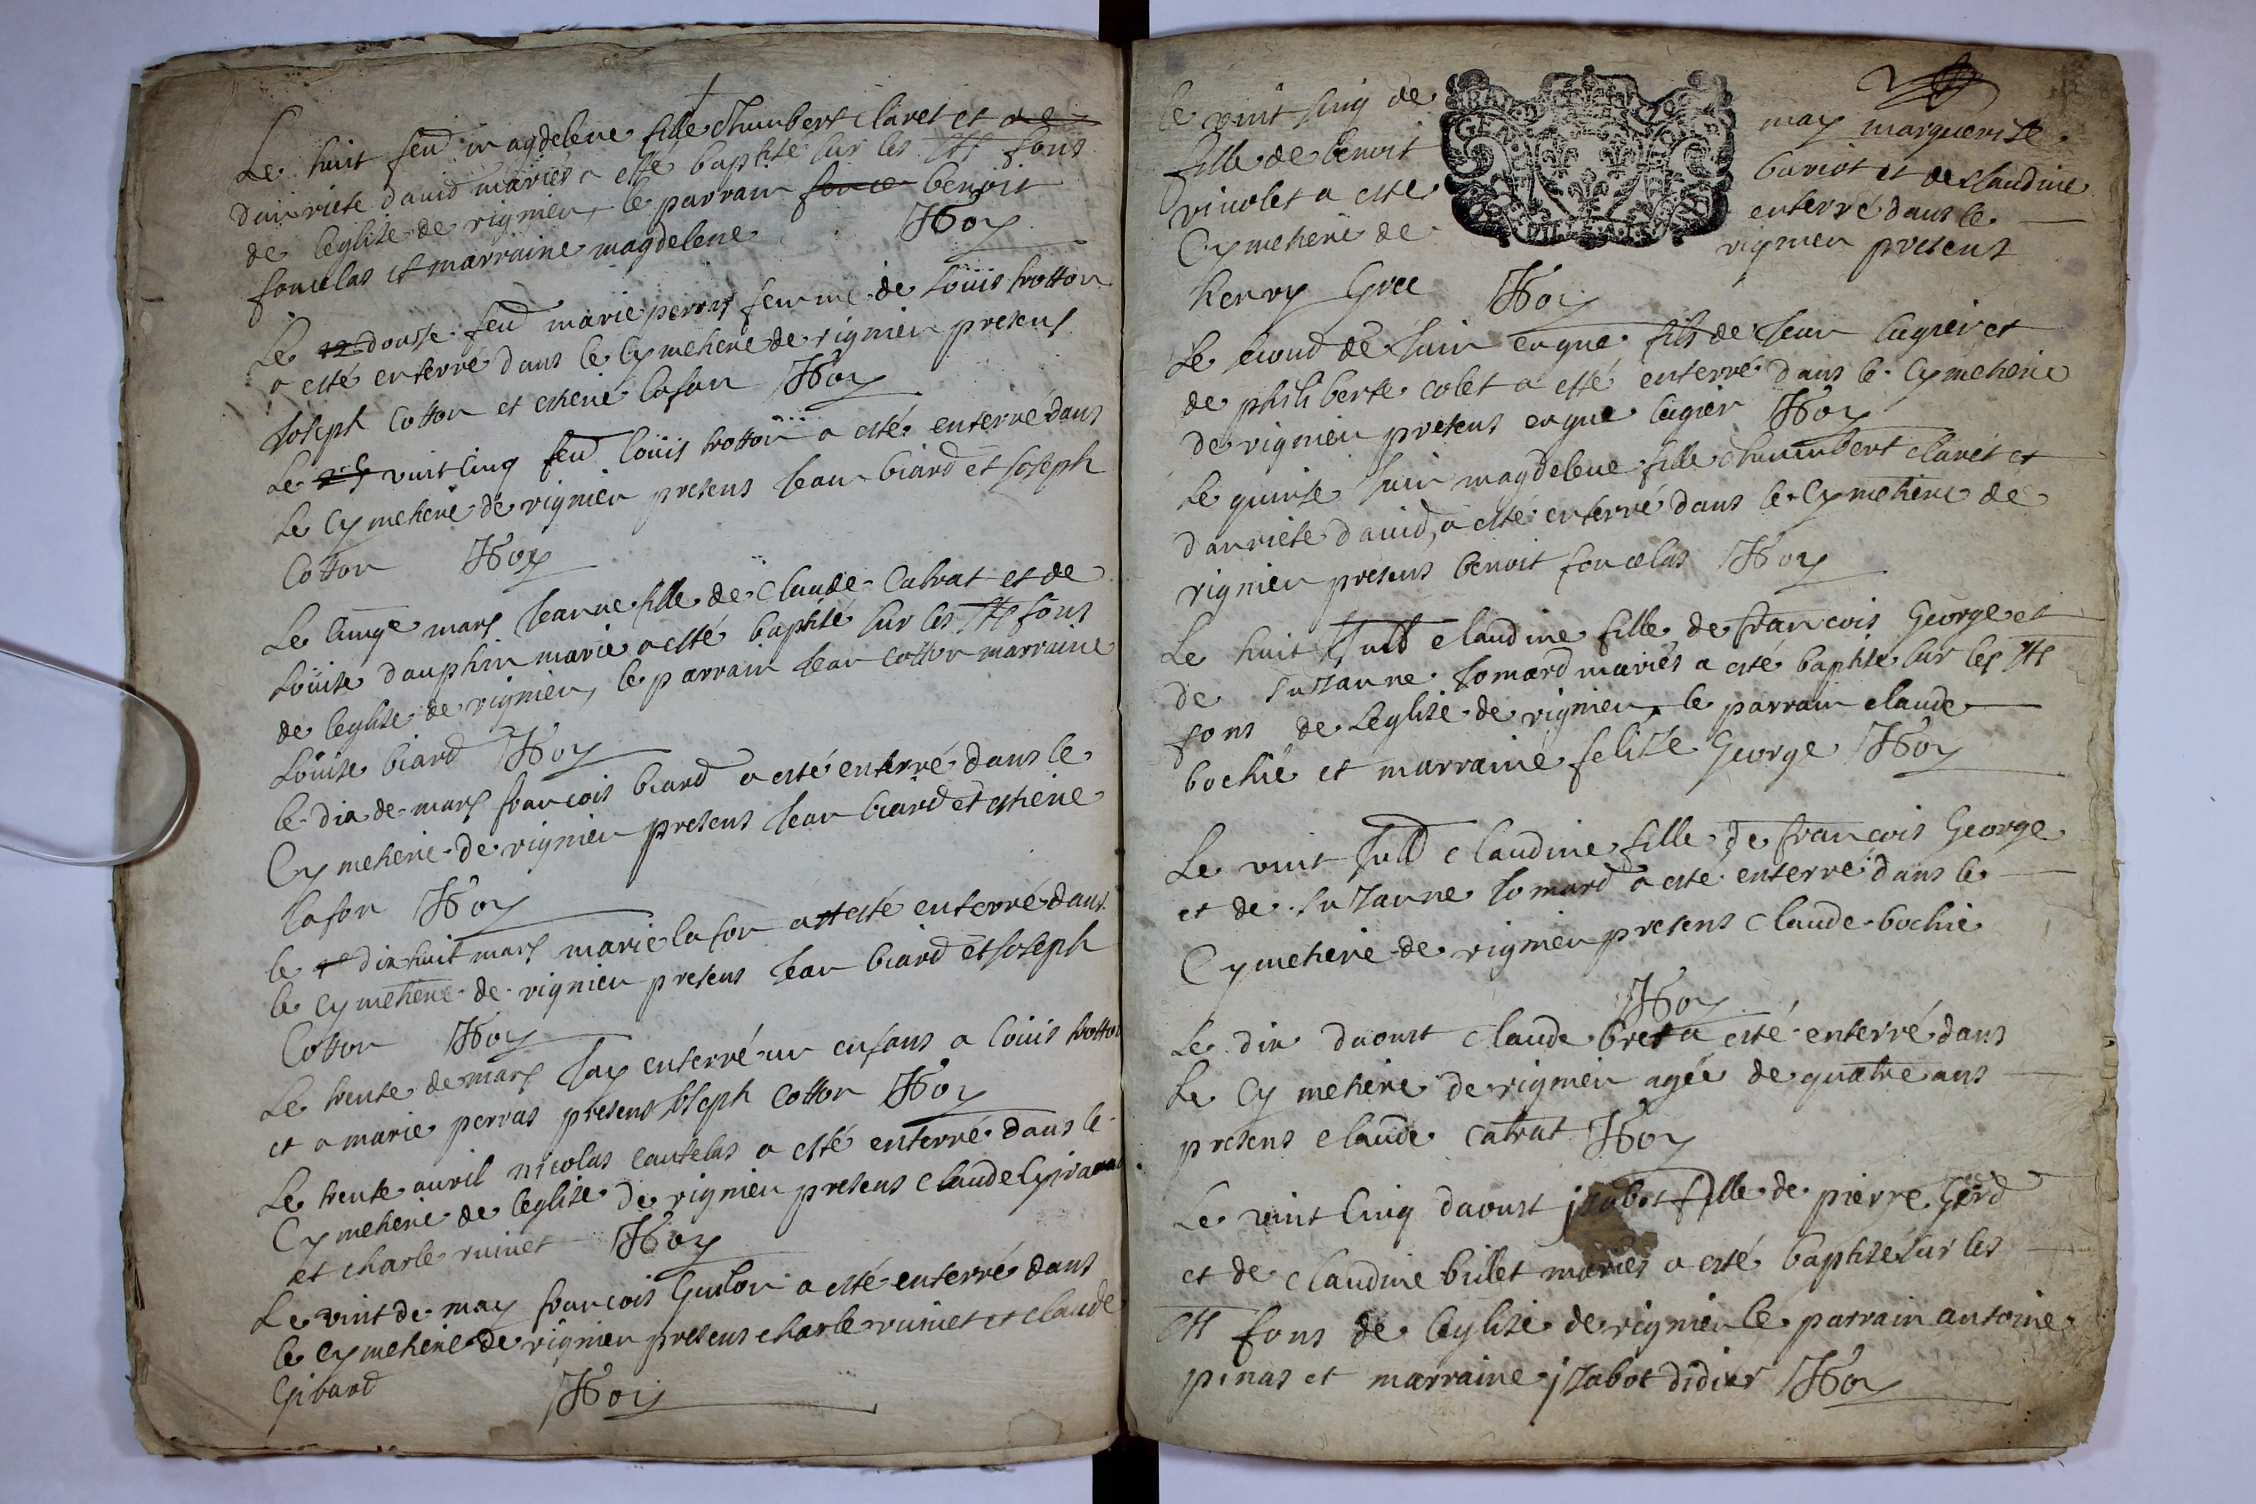 Le huit feu magdelene fille dhumbert claret et de
danriete david mariés a esté baptise sur les sts fons
de leglise de rignieu, le parrain benoist
foncelas et marraine magdelene Hoy
Le 12 dousse feu marie perras femme de Loüis trotton
a esté enterré dans le Cymetiere de rignieu presens
Joseph Cotton et estiene lafon Hoy
Le 25 vint cinq feu loüis trotton a esté enterré dans
Le Cymetiere de rignieu presens Jean biard et Joseph
Cotton Hoy
Le mars Jeanne fille de Claude Catrat et de
Loüise dauphin marie a esté baptisé sur les sts fons
de leglise de rignieu, le parrain Jean cotton marraine
Loüise biard Hoy
le dix de mars francois biard a esté enterré dans le
Cymetiere de rignieu presens Jean biard et estiene
lafon Hoy
le dix huit mars marie lafon a esté enterré dans
le cymetiere de rignieu presens Jean biard et Joseph
Cotton Hoy
Le trente de mars Jay enterré un enfans a loüis trotton
et a marie perras presens Joseph Cotton Hoy
Le trente avril nicolas cautelas a esté enterré dans le
Cymetiere de leglise de rignieu presens claude
et charle ruinet Hoy
Le vint de may francois Guilon a esté enterré dans
le cymetiere de rignieu presens charle ruinet et claude
Girard Hoy
le vint sinq de may marguerite
fille de benoit bariot et de claudine
vinolet a esté enterré dans le
Cymetiere de rignieu presens
henry Gree Hoy
Le second de Juin eugue fils de Jean lagier et
de philiberte colet a esté enterré dans le Cymetiere
de rignieu presens eugue lagier Hoy
Le quinse Juin magdelene fille dhumbert claret et
danriete david, a esté enterré dans le Cymetiere de
rignieu presens benoit foncelas Hoy
Le huit Jull claudine fille de francois George et
de susanne Jomard mariés a esté baptise sur les sts
fons de Leglise de rignieu, le parrain claude
bochié et marraine felisse George Hoy
Le vint Jull claudine fille de francois George
et de susanne Jomard a esté enterré dans le
Cymetiere de rignieu presens claude bochie
Hoy
Le dix daoust claude bret a esté enterré dans
Le Cymetiere de rignieu agée de quatre ans
presens claude catrat Hoy
Le vint cinq daoust jsabot fille de pierre Gird
et de claudine billet mariés a esté baptisé sur les
sts fons de leglise de rignieu le parrain antoine
pinas et marraine jsabot didier Hoy